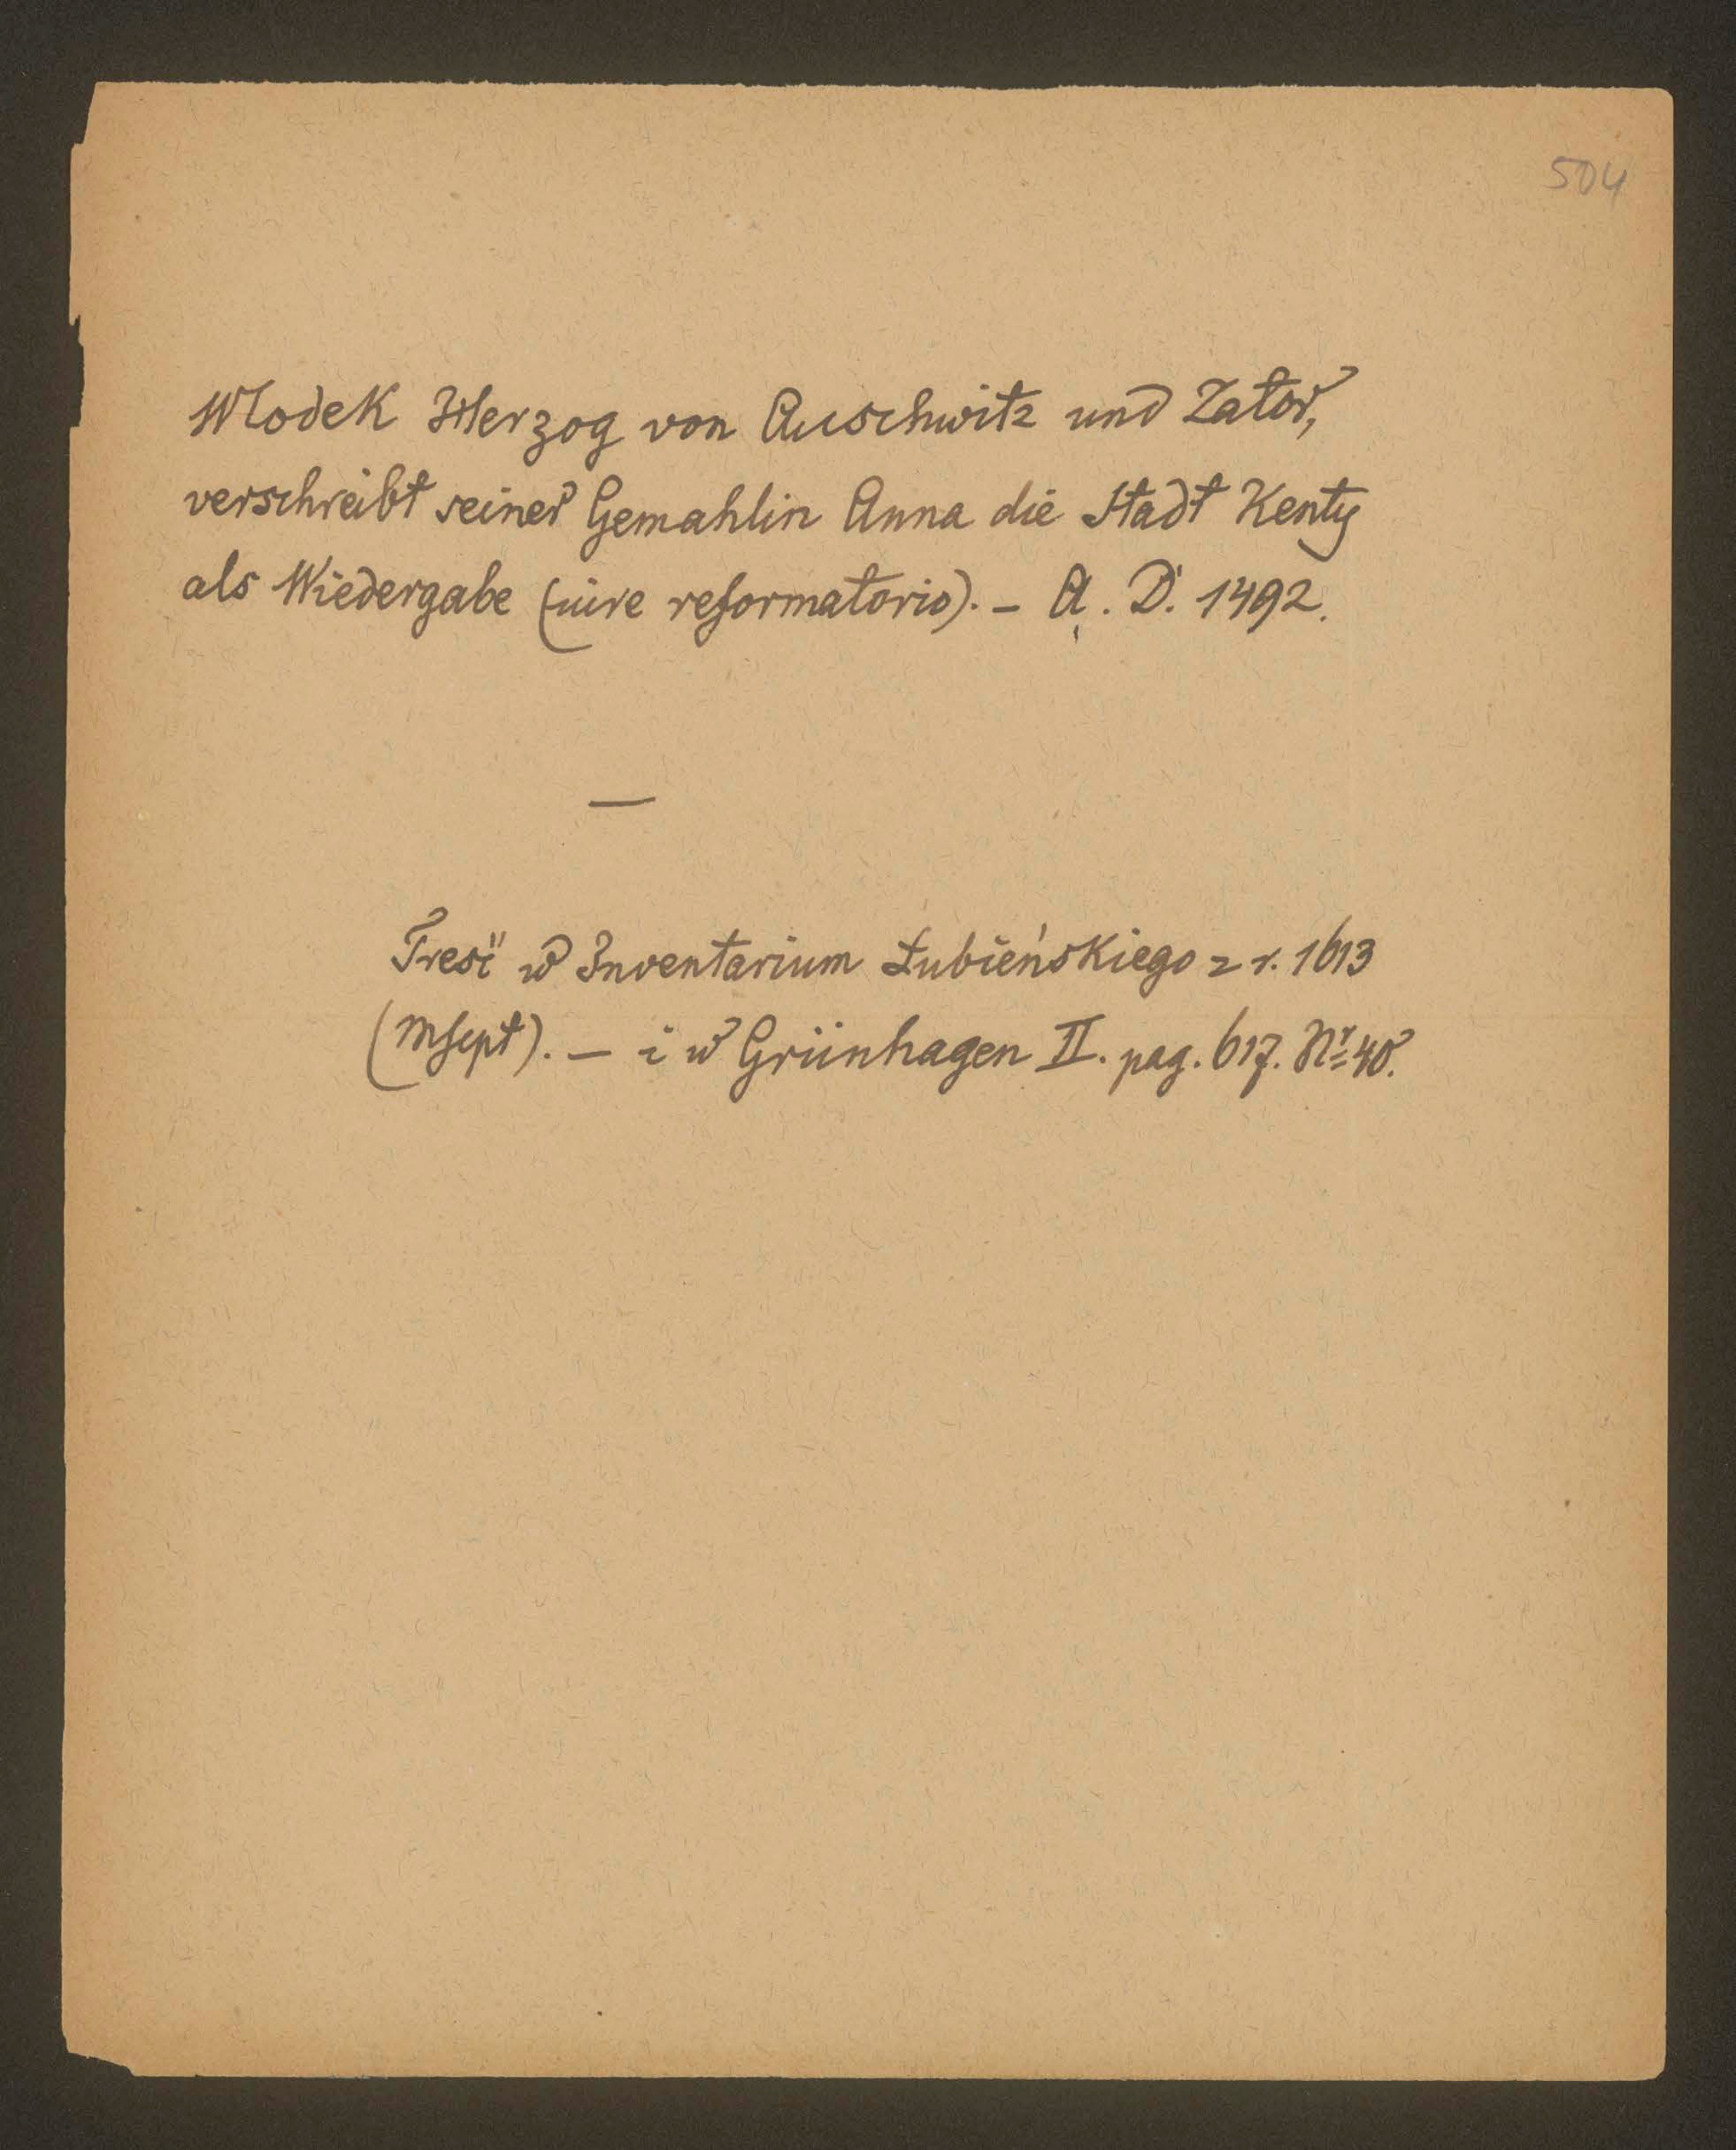 504
Wlodek Herzog von Auschwitz und Zator,
verschreibt seiner Gemahlin Anna die Stadt Kenty
als Wiedergabe (iure reformatorio). – A. D. 1492.
—
Treść w Inventarium Łubieńskiego z r. 1613
(Mscpt). – i w Grünhagen II. pag. 617. Nr 40.